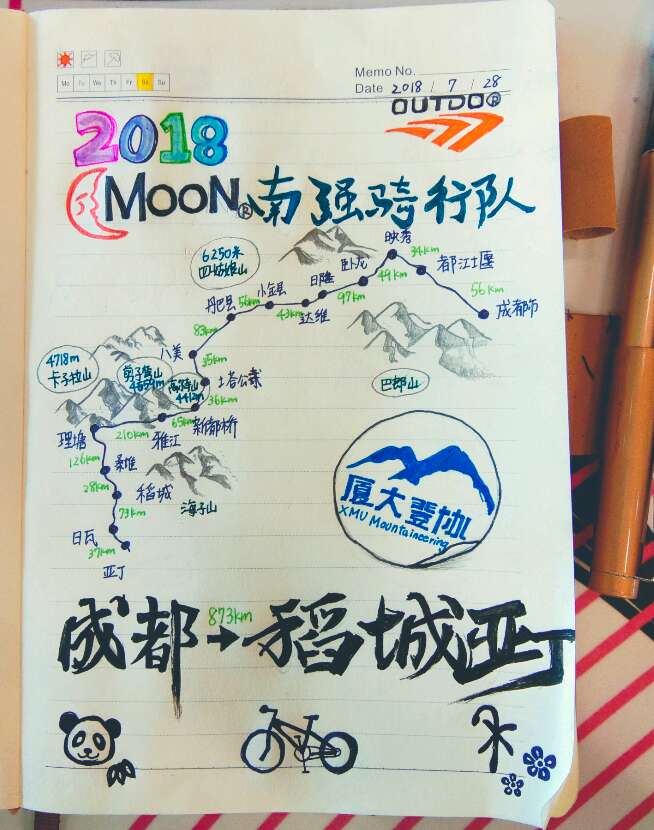 Memo No.
Mo Tu We Th Fr Sa Su
Date 2018 / 7 / 28
OUTDO®
2018
MOON® 南强骑行队
映秀
34km
6250米
四姑娘山
卧龙
都江堰
日隆
49km
56km
小金县
97km
丹巴县
56km
43km
达维
成都市
83km
八美
35km
4718m
卡子拉山
剪子弯山
4659m
高尔寺山
4412m
塔公
巴郎山
36km
65km
新都桥
理塘
210km
雅江
126km
桑堆
28km
稻城
海子山
73km
日瓦
37km
亚丁
厦大登协
XMU Mountaineering
873km
成都→稻城亚丁